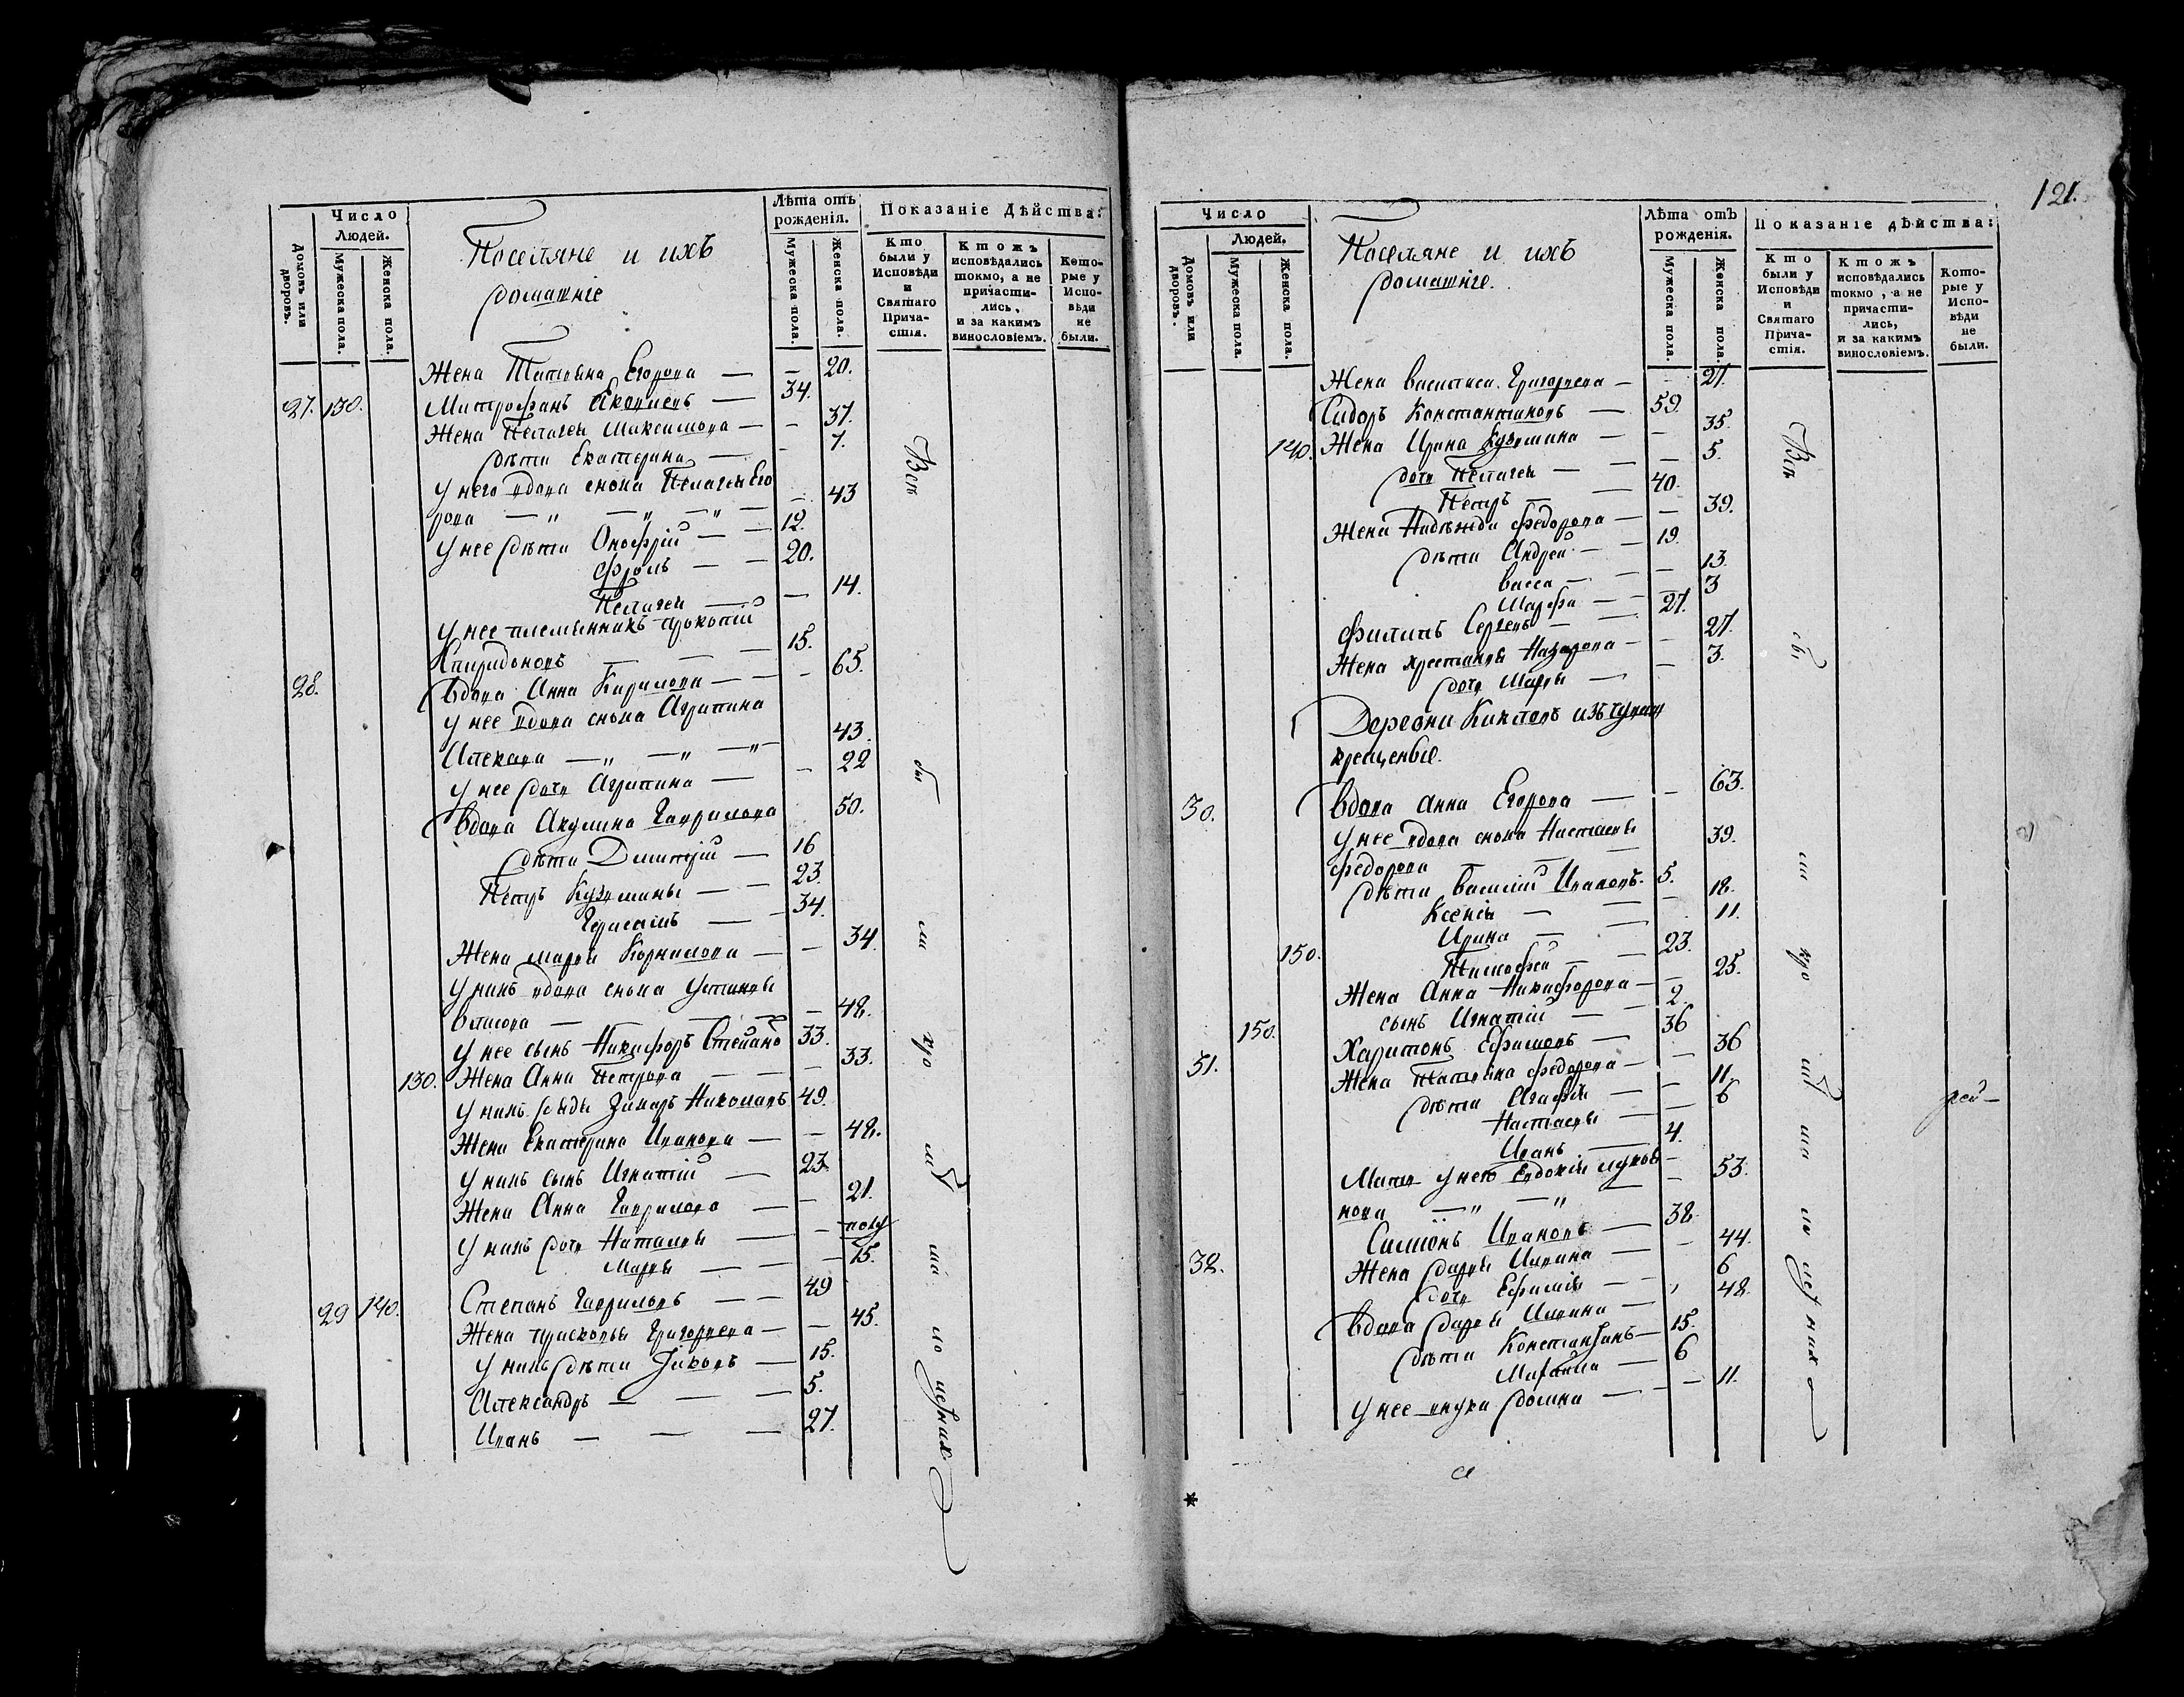 Число
Людей.
Домовъ или дворовъ.
Мужеска пола.
Женска пола.
Поселяне и ихъ
домашніе
Лѣта отъ
рожденія.
Мужеска пола.
Женска пола.
Показаніе Дѣйства:
Кто
были у
Исповѣди
и
Святаго
Прича-
стія.
Ктожъ
исповѣдались
токмо, а не
причасти-
лись,
и за какимъ
винословіемъ.
Кото-
рые у
Испо-
вѣди
не
были.
Жена Татіяна Егорова — — 20.
27. 130. Митрофанъ Яковлевъ — 34.
Жена Пелагея Максимова — — 37.
дѣти Екатерина — — 7.
У него вдова сноха Пелагея Его
рова — „ — „ — „ — — 43
У нее дѣти Онофрій — — 12.
Фролъ — — 20.
Пелагея — — 14.
У нее племянникъ прокопій
Спиридоновъ — — — 15.
28. Вдова Анна Кирилова — — — 65.
У нее вдова сноха Агрипина
Алексѣева — „ — „ — „ 43.
У нее дочь Агрипина — — 22
Вдова Акулина Гаврилова 50.
дѣти Димитрій — 16
Петръ Кузмины — — 23.
Герасимъ — — 34.
Жена марѳа Корнилова — — 34.
У нихъ вдова сноха Устинья
— — — — 48.
У нее сынъ Никифоръ Степано 33.
130. Жена Анна Петрова — — — 33.
У нихъ Николаевъ 49.
Жена Екатерина Иванова — — 48.
У нихъ сынъ Игнатій — 23.
Жена Анна Гаврилова — — 21.
У нихъ дочь Наталья — — полу
Марья — — — 15.
29 140. Степанъ Гавриловъ — — 49
Жена прасковья Григорьева — — 45.
У нихъ дѣти Яковъ — 15.
Александръ — — — 5.
Иванъ — — — 27.
Всѣ
бы
ли
кро
мѣ
ма
ло
лѣтних
121.
Число
Людей.
Домовъ или дворовъ.
Мужеска пола.
Женска пола.
Поселяне и ихъ
домашніе.
Лѣта отъ
рожденія.
Мужеска пола.
Женска пола.
Показаніе дѣйства:
Кто
были у
Исповѣди
и
Святаго
Прича-
стія.
Ктожъ
исповѣдались
токмо, а не
причасти-
лись,
и за какимъ
винословіемъ.
Кото-
рые у
Испо-
вѣди
не
были.
Жена василиса Григорьева — — 27.
Сидоръ Константиновъ — 59.
140. Жена Ирина Кузмина — — 35.
дочь Пелагея — — — 5.
Петръ — — 40.
Жена Надежда Федорова — — 39.
дѣти Андрей — — 19.
васса — — — 13.
Марфа — — — 3
Филипъ Сергеевъ — — 27.
Жена Назарова — — 27.
дочь Марья — — 3.
Деревни
крещеныя.
30. Вдова анна Егорова — — 63.
У нее вдова сноха Настасья
федорова — — — 39.
дѣти василій Ивановъ. 5.
Ксенія — — — 12.
Ирина — — 11.
150. Тимофей — — 23.
Жена Анна Никифорова — — 25.
сынъ Игнатій — — 2.
150. Харитонъ Ефимовъ — 36
31. Жена Татіяна федорова — — 36
дѣти Агафья — — 11.
Настасья — — 6
Иванъ — 4.
Мать у него Евдокія лукья —
нова — „ — „ — — 53.
Симіонъ Ивановъ — 38
32. Жена дарья Ильина — — 44.
дочь Ефимія — — 6
Вдова дарья Ильина — 48.
дѣти Константинъ — 15.
Михайла — 6
У нее внука домна — — — 11.
Всѣ
бы
ли
кро
мѣ
ма
ло
лѣт
них
рей —